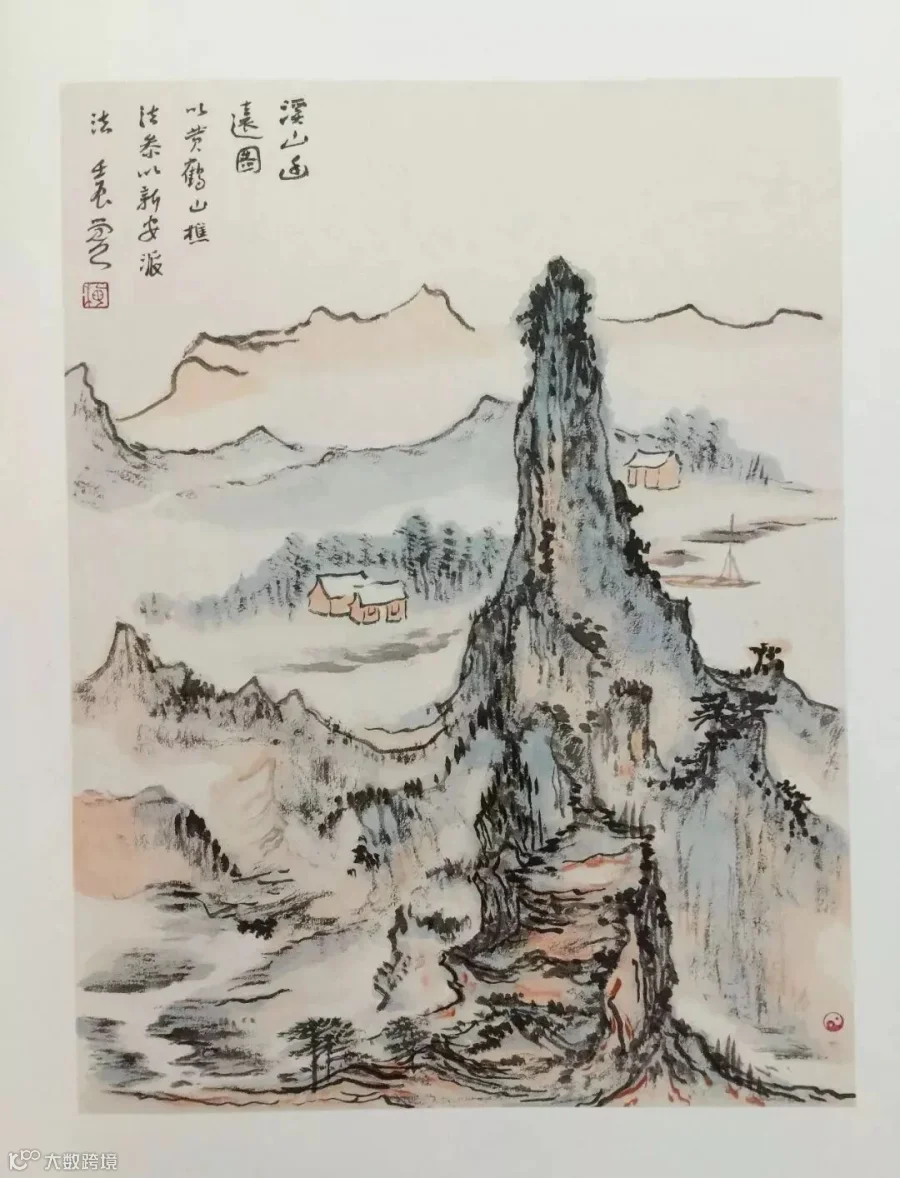 溪山幽
遠圖
以黄鶴山樵
法参以新安派
法 壬辰
大数跨境